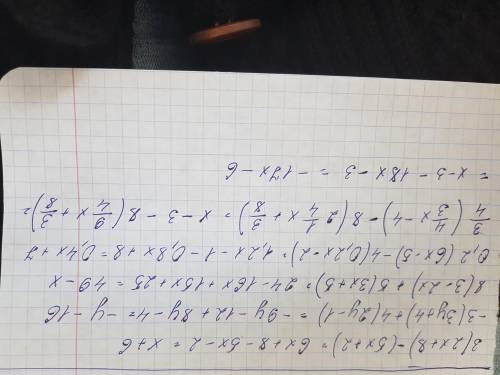 3(2x+8)-(5x+2)= 6x+8-5x-2= x+6
-3(3y+4)+4(2y-1)= -9y-12+8y-4= -y-16
8(3-2x)+5(3x+5)= 24-16x+15x+25= 49-x
0,2(6x-5)-4(0,2x-2)= 1,2x-1-0,8x+8=0,4x+7
3/4(4/3x-4)-8(2 1/4x+3/8)= x-3-8(9/4x+3/8)=
= x-3-18x-3 = -17x-6